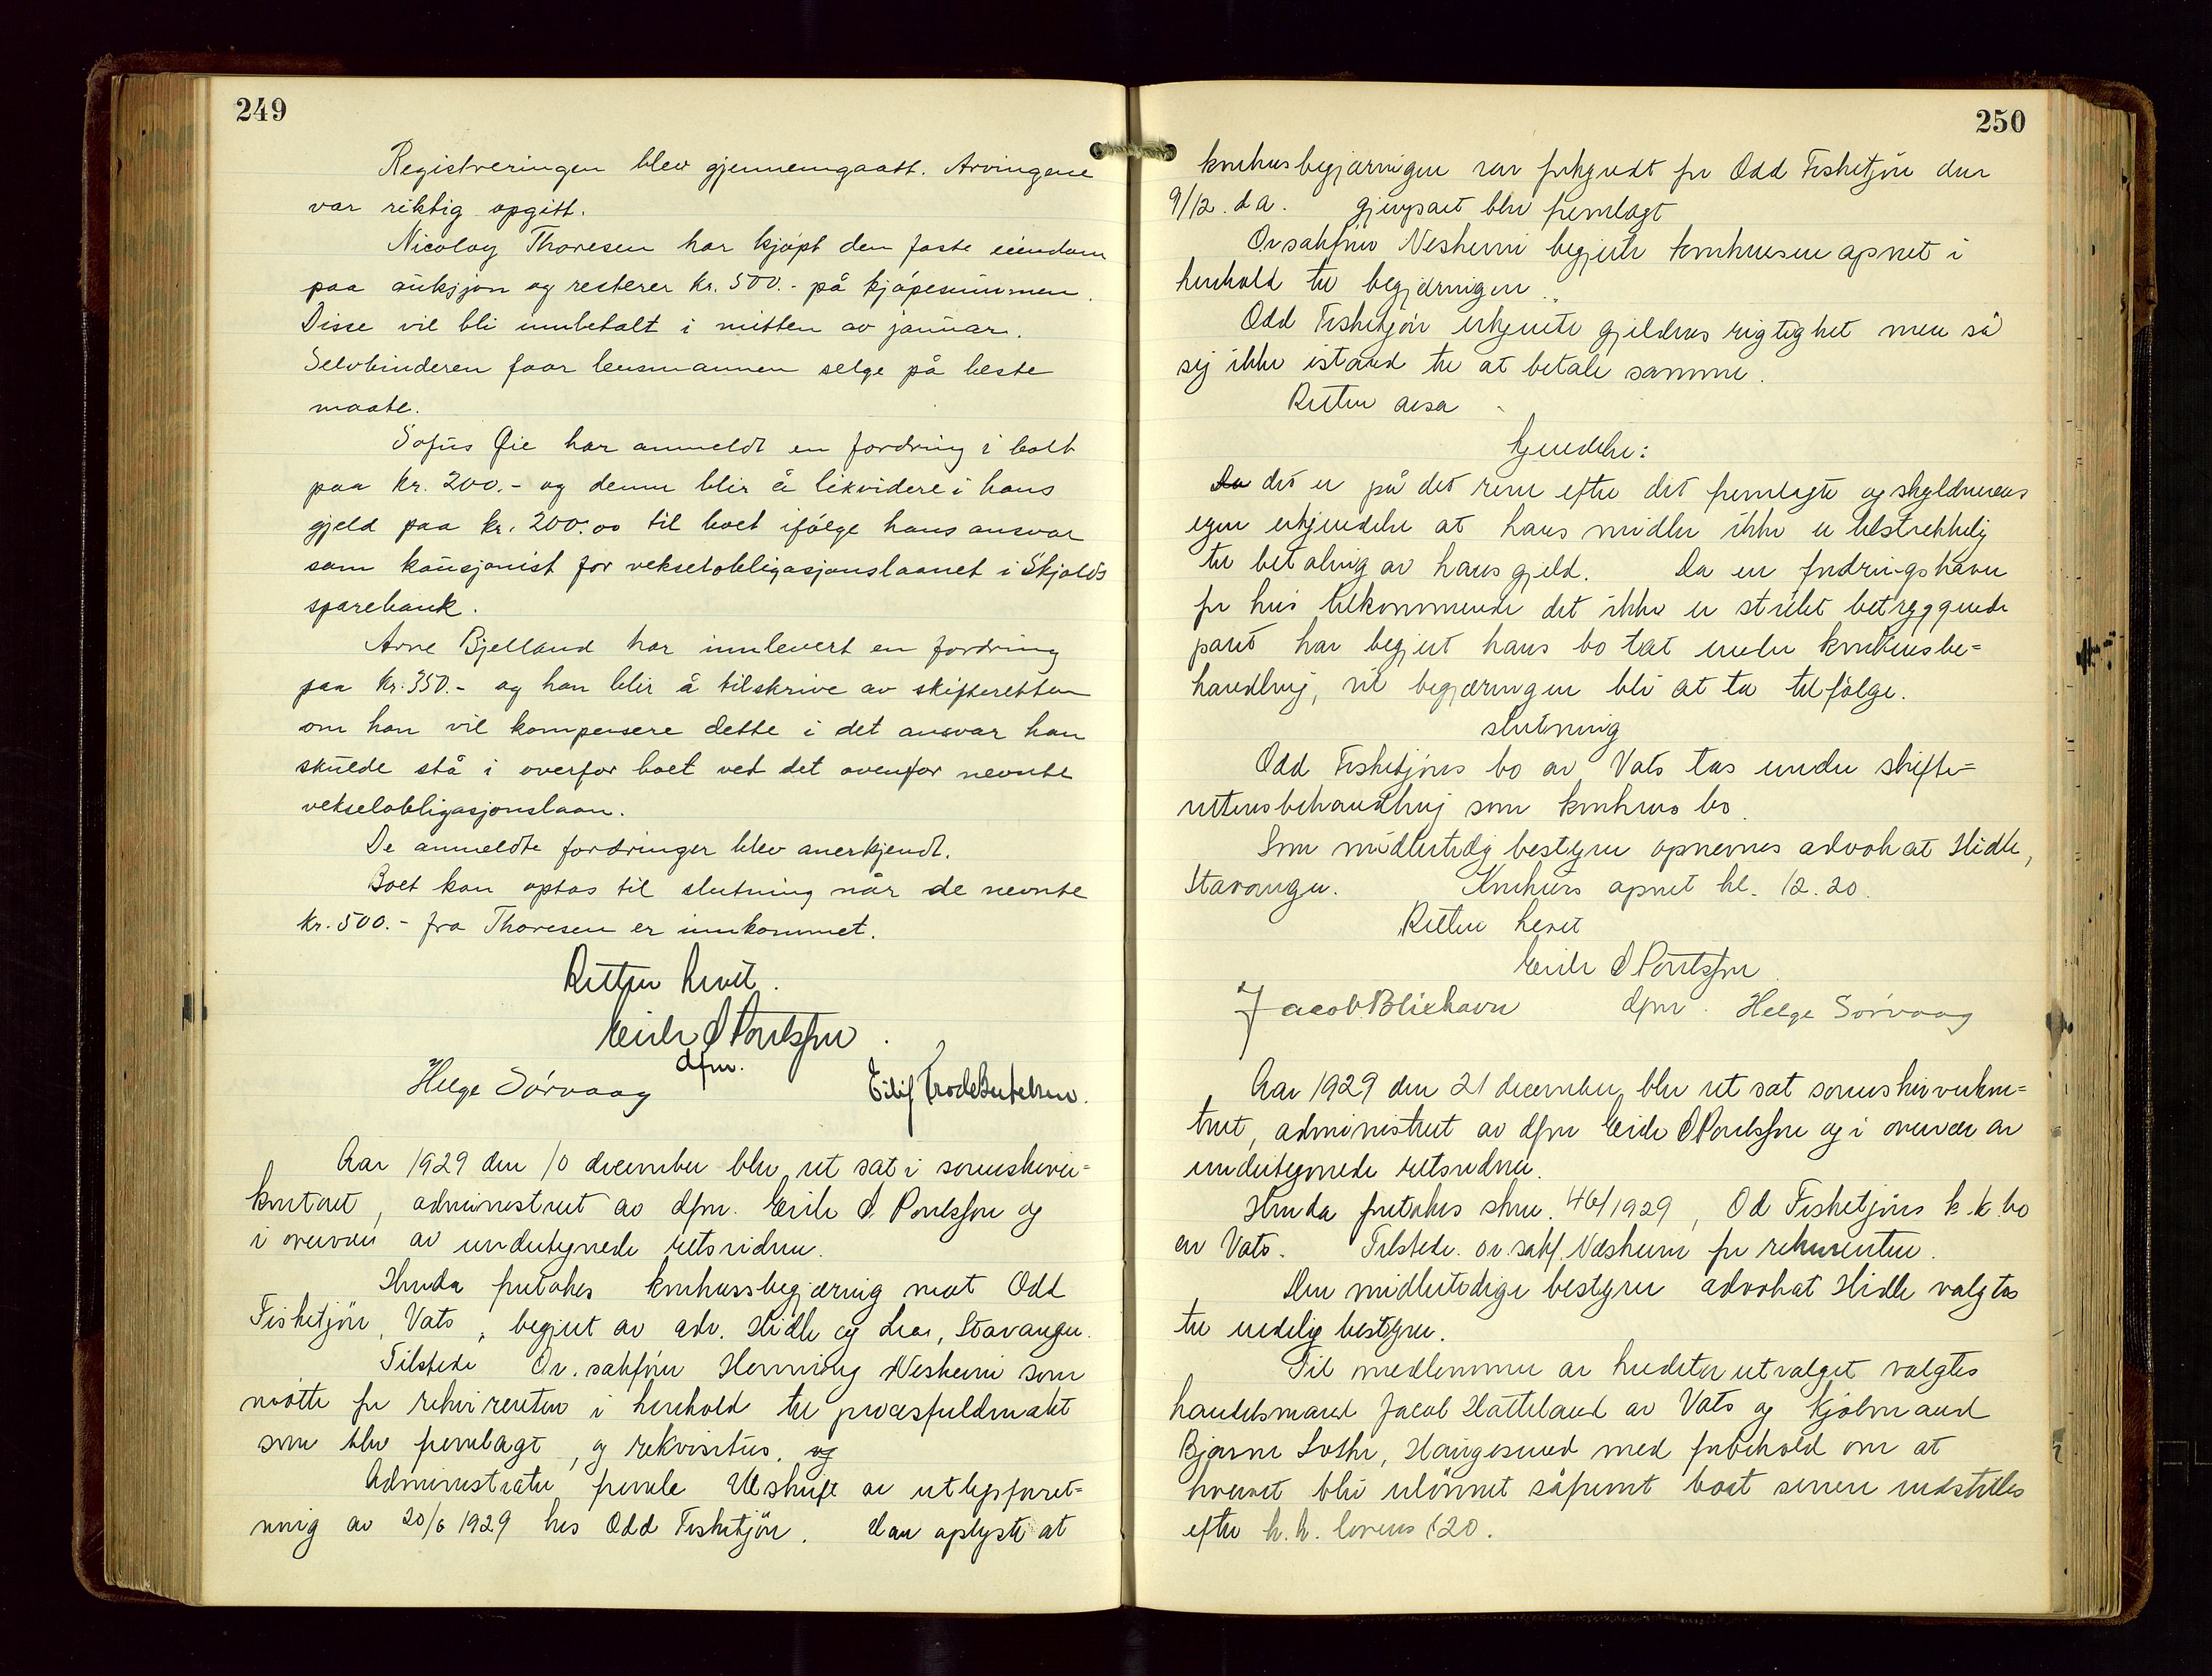 249
Registreringen blev gjennemgaatt. Arvingene
var riktig opgitt.
Nicolay Thoresen har kjøpt den faste eiendom
paa auksjon og resterer kr. 500.- på kjøpesummen.
Disse vil bli innbetalt i mitten av januar.
Selvbinderen faar lensmannen selge på beste
maate.
Sofus Øie har anmeldt en fordring i boet
paa kr. 200.- og denne blir å likvidere i hans
gjeld paa kr. 200.00 til boet ifølge hans ansvar
som kausjonist for vekselobligasjonslaanet i Skjolds
sparebank.
Arne Bjelland har innlevert en fordring
paa kr. 350.- og han blir å tilskrive av skifteretten
om han vil kompensere dette i det ansvar han
skulde stå i overfor boet ved det ovenfor nevnte
vekselobligasjonslaan.
De anmeldte fordringer blev anerkjendt.
Boet kan optas til slutning når de nevnte
kr. 500.- fra Thoresen er innkommet.
Retten hevet.
Eirik S Poulsson
dfm.
Helge Sørvaag
Aar 1929 den 10 december blev ret sat i sorenskriver=
kontoret, administreret av dfm. Eirik S. Poulsson og
i overvær av undertegnede retsvidner.
Herunder foretokes konkursbegjæring mot Odd
Fisketjøn, Vats, begjert av adv. Hidle og Lea, Stavanger.
Tilstede Or. sakfører Henning Nesheim som
møtte for rekvirenten i henhold til procesfuldmakt
som blev fremlagt, og rekvisitus. og
Administrator fremla Utskrift av utlegsforret=
ning av 20/6 1929 hos Odd Fisketjøn. Han oplyste at
250
konkursbegjæringen var forkyndt for Odd Fisketjøn den
9/12. d.a. Gjenpart blev fremlagt
Orsakfører Nesheim begjerte konkursen åpnet i
henhold til begjæringen.
Odd Fisketjøn erkjente gjeldens rigtighet men så
sig ikke istand til at betale samme.
Retten avsa
Kjendelse:
Da det er på det rene efter det fremlagte og skyldnerens
egen erkjendelse at hans midler ikke er tilstrekkelig
til betaling av hans gjeld. Da en fordringshaver
for hvis tilkommende det ikke er stillet betryggende
pant har begjert hans bo tat under konkursbe=
handling, vil begjæringen bli at ta tilfølge.
slutning
Odd Fisketjøns bo av Vats tas under skifte=
rettens behandling som konkurs bo.
Som midlertidig bestyrer opnevnes advokat Hidle,
Stavanger. Konkurs åpnet kl. 12.20.
Retten hevet
Eirik S Poulsson
Jacob Bliehavn dfm. Helge Sørvaag
Aar 1929 den 21 december blev ret sat sorenskriverkon=
toret, administreret av dfm Eirik S Poulsson og i overvær av
undertegnede retsvidner.
Herunder foretokes skrn. 46/1929, Od Fisketjøns k.k.bo
av Vats. Tilstede. or.sakf. Nesheim for rekvirenten.
Den midlertidige bestyrer advokat Hidle valgtes
til endelig bestyrer.
Til medlemmer av kreditorutvalget valgtes
handelsmand Jacob Hatteland av Vats og kjøbmand
Bjarne Lothe, Haugesund med forbehold om at
hvervet blir ulønnet såfremt boet senere indstilles
efter k.k. lovens § 20.